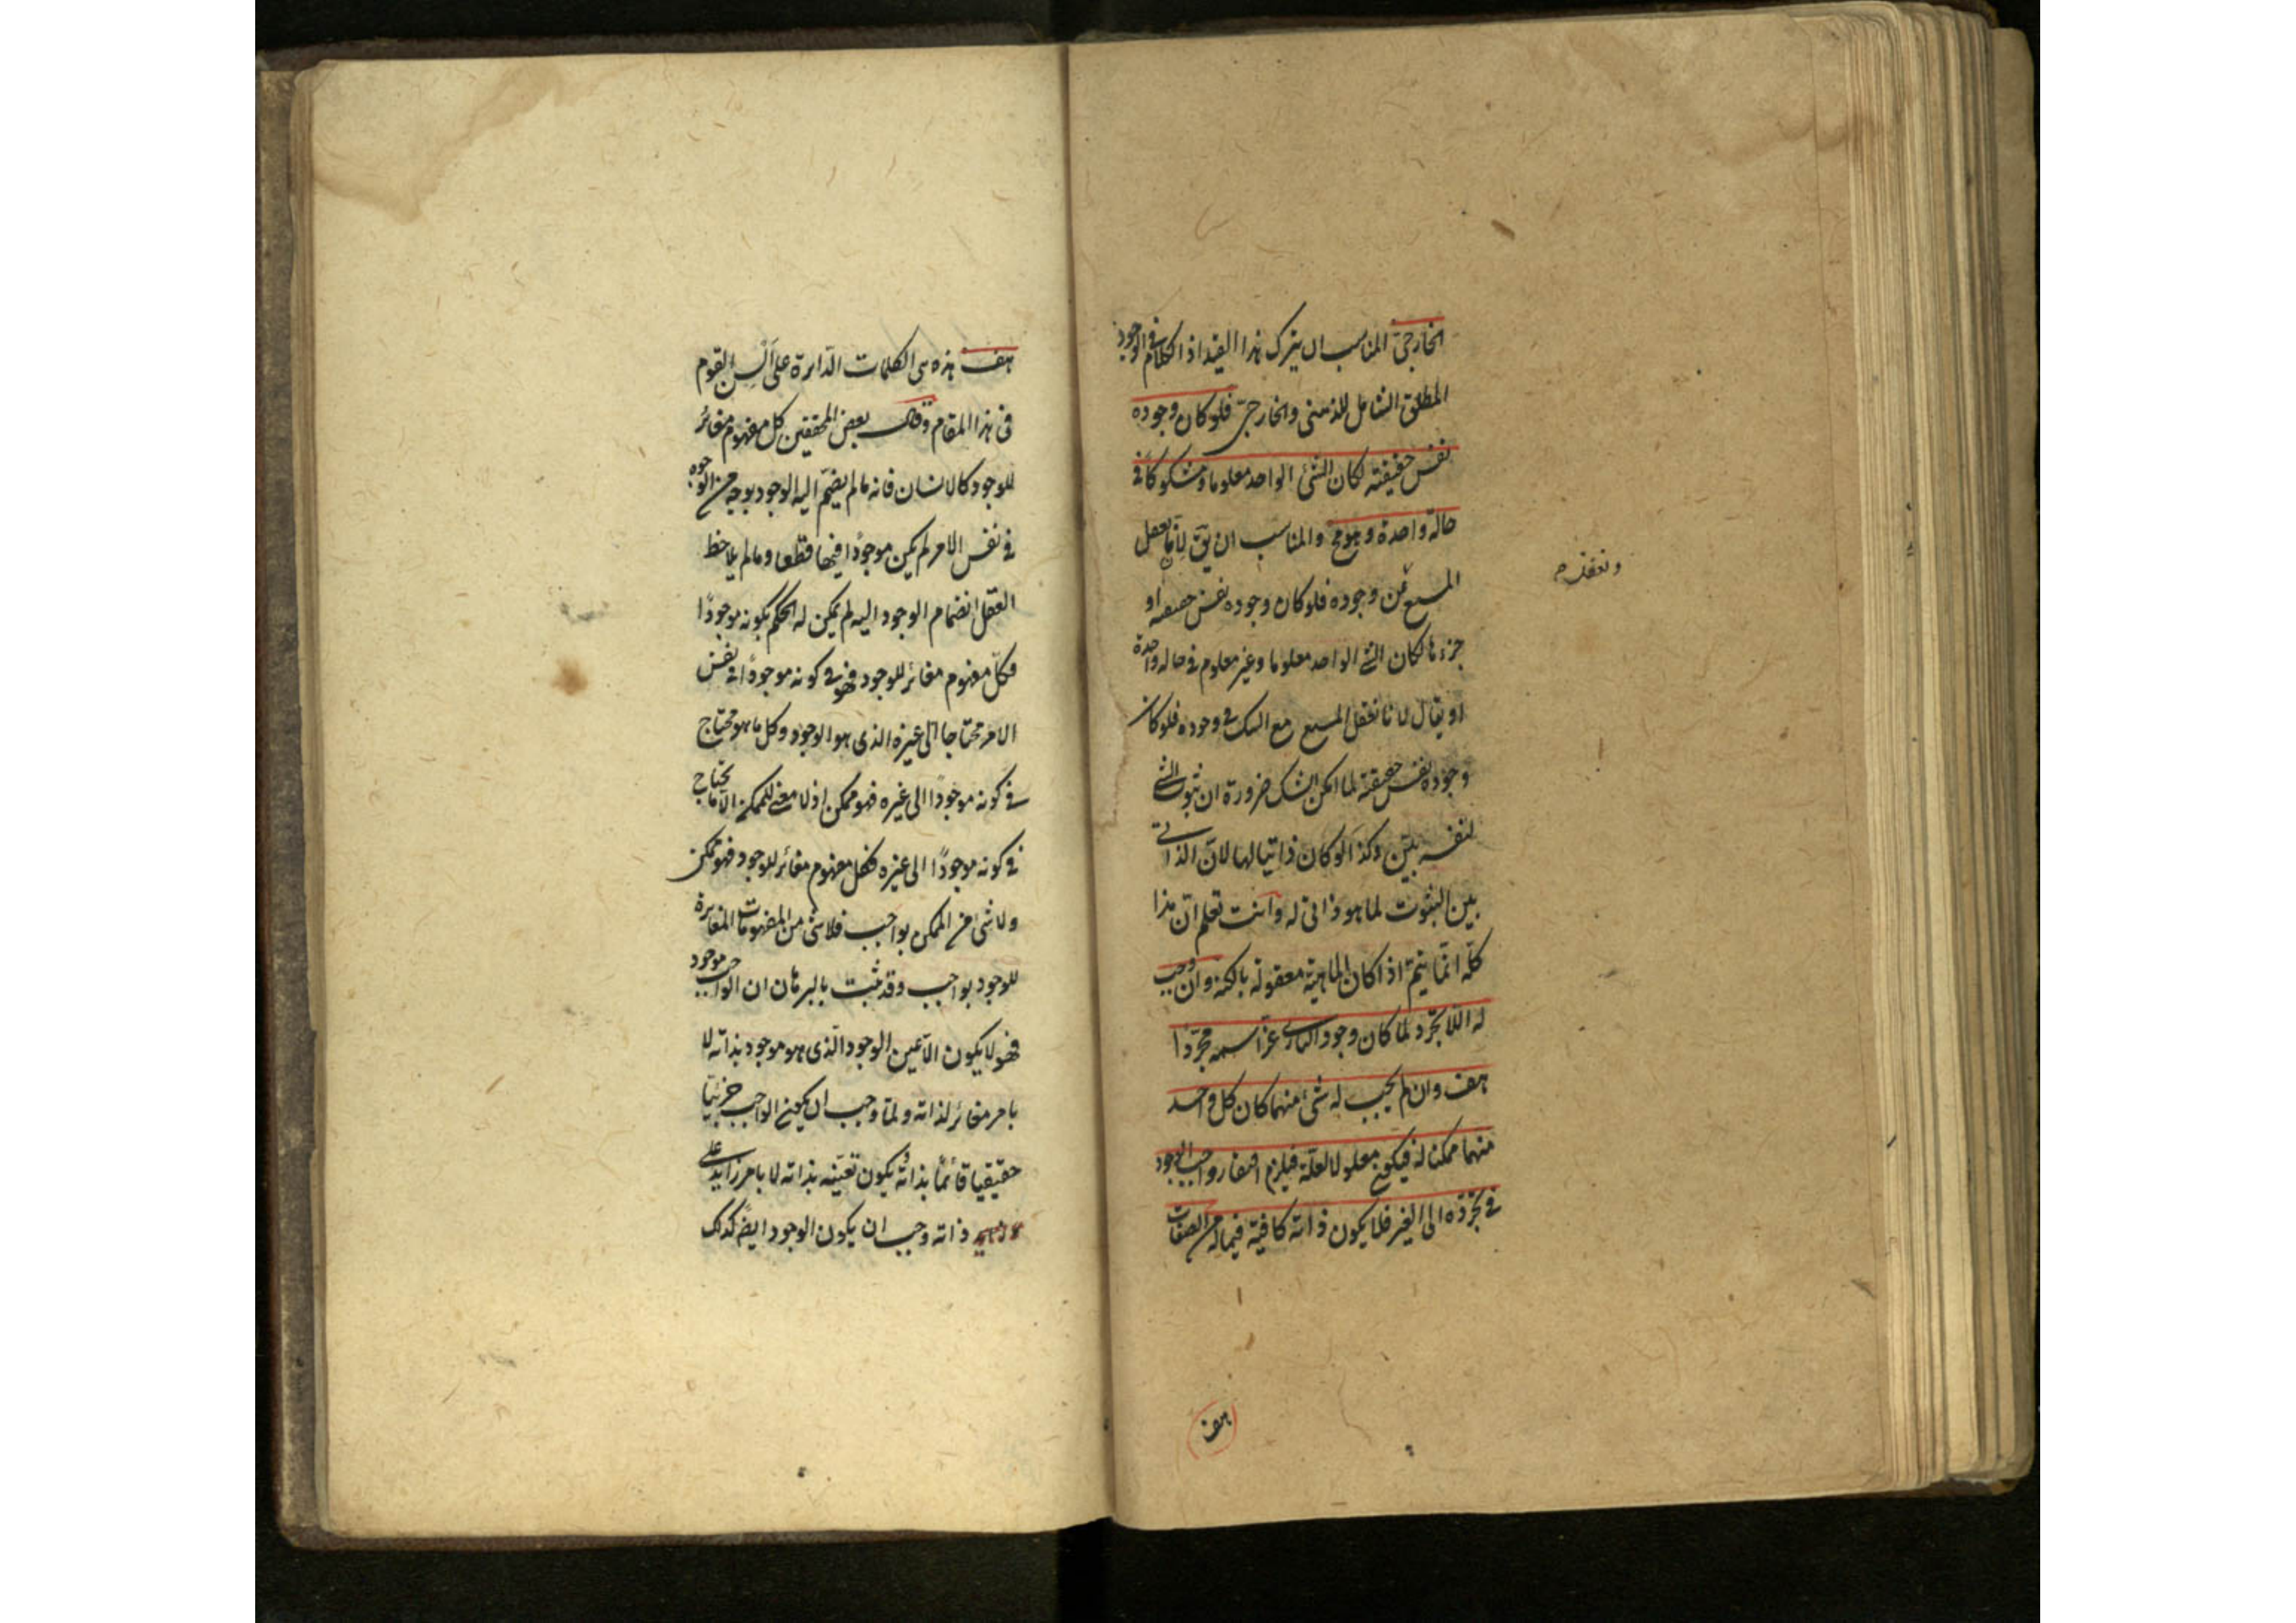 الخارجىّ المناسب ان يترك هذا القيد اذ الكلام فى الوجود
المطلق الشامل للذهنى والخارجىّ فلو كان وجوده
نفس حقيقته لكان الشئ الواحد معلوما ومشكوكا فى
حالة واحدة وهو مح والمناسب ان يق لانّا نعقل
المسبع مع وجوده فلو كان وجوده نفس حقيقته او
جزءها لكان الشئ الواحد معلوما وغير معلوم فى حالة واحدة
او يقال لانا نعقل المسبع مع الشك فى وجوده فلو كان
وجوده نفس حقيقته لما امكن الشك ضرورة ان ثبوت الشئ
لنفسه بيّن وكذا لو كان ذاتيا لها لانّ الذاتى
بين الثبوت لما هو ذاتى له وانت تعلم انّ هذا
كلّه انّما يتمّ اذا كان الماهيّة معقولة بالكنه وان وجب
له اللاتجرّد لما كان وجود البارى عزّ اسمه مجرّدًا
هف وان لم يجب له شئ منهما كان كل واحد
منهما ممكنا له فيكون معلولا لعلّة فيلزم افتقار واجب الوجود
فى تجرّده الى الغير فلا يكون ذاته كافية فيما له من الصفات
هف
هف هذه هى الكلمات الدّائرة على السن القوم
فى هذا المقام وقال بعض المحققين كل مفهوم مغائر
للوجود كالانسان فانه ما لم ينضمّ اليه الوجود بوجه من الوجوه
فى نفس الامر لم يكن موجودًا فيها قطعا وما لم يلاحظ
العقل انضمام الوجود اليه لم يمكن له الحكم بكونه موجودًا
فكلّ مفهوم مغائر للوجود فهو فى كونه موجودًا فى نفس
الامر محتاجا الى غيره الذى هو الوجود وكل ما هو محتاج
فى كونه موجودًا الى غيره فهو ممكن اذ لا معنى للممكن الا ما يحتاج
فى كونه موجودًا الى غيره فكل مفهوم مغائر للوجود فهو ممكن
ولا شئ من الممكن بواجب فلا شئ من المفهومات المغايرة
للوجود بواجب وقد ثبت بالبرهان ان الواجب موجود
فهو لا يكون الّا عين الوجود الّذى هو موجود بذاته لا
بامر مغائر لذاته ولمّا وجب ان يكون الواجب جزئيّا
حقيقيا قائمًا بذاته ويكون تعيّنه بذاته لا بامر زايد على
ذاته وجب ان يكون الوجود ايضً كذلك